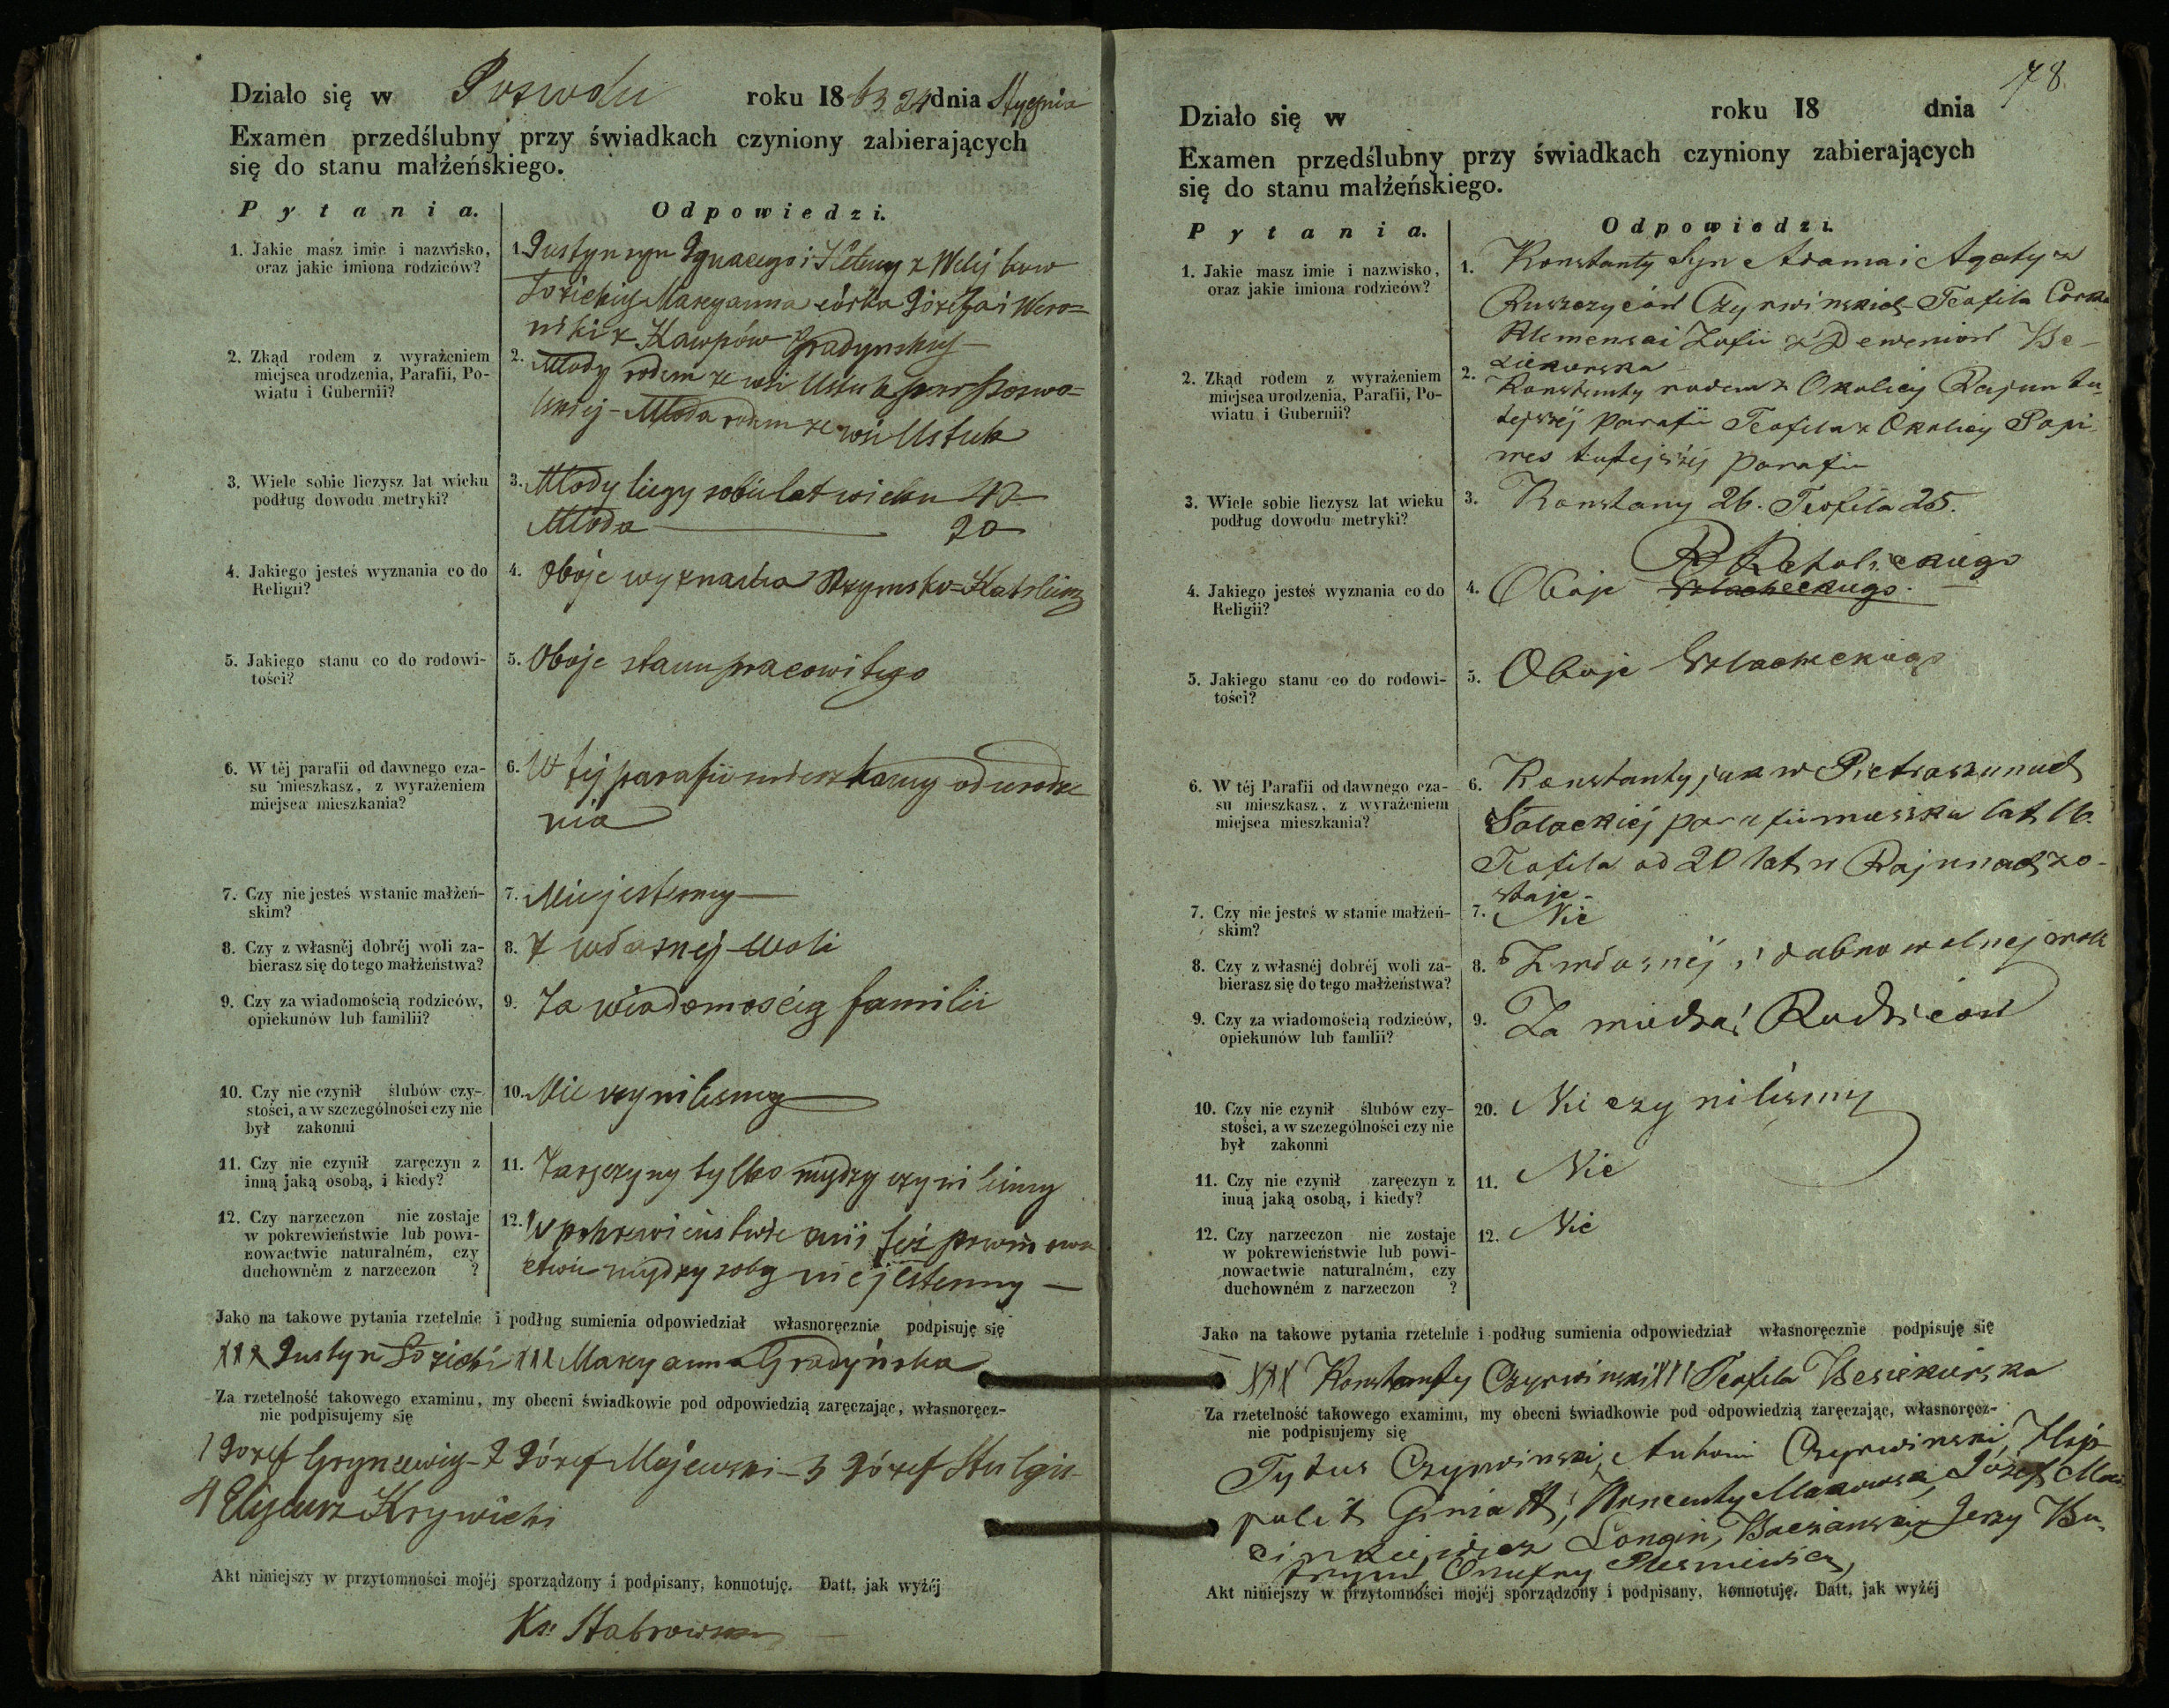 Działo się w Poswolu roku 1863 24 dnia Stycznia
Examen przedślubny przy świadkach czyniony zabierających
się do stanu małżeńskiego.
Pytania. Odpowiedzi.
1. Jakie masz imie i nazwisko,
oraz jakie imiona rodziców?
1. Justyn syn Ignacego i Heleny z
Łozickich Maryanna córka Józefa i Wero=
niki z Gradynskich
2. Zkąd rodem z wyrażeniem
miejsca urodzenia, Parafii, Po-
wiatu i Gubernii?
2. Młody rodem ze wsi Ustuk par Poswo=
lskiej – Młoda rodem ze wsi Ustuk
3. Wiele sobie liczysz lat wieku
podług dowodu metryki?
3. Młody liczy sobie lat wieku 42
Młoda 20
4. Jakiego jesteś wyznania co do
Religii?
4. Oboje wyznania Rzymsko=Katolick
5. Jakiego stanu co do rodowi-
tości?
5. Oboje stanu pracowitego
6. W téj parafii od dawnego cza-
su mieszkasz, z wyrażeniem
miejsca mieszkania?
6. W tej parafii mieszkamy od urodze
nia
7. Czy nie jesteś w stanie małżeń-
skim?
7. Nie jestesmy
8. Czy z własnéj dobréj woli za-
bierasz się do tego małżeństwa?
8. Z własnej woli
9. Czy za wiadomością rodziców,
opiekunów lub familii?
9. Za wiadomoscią familii
10. Czy nie czynił ślubów czy-
stości, a w szczególności czy nie
był zakonni
10. Nie czynilismy
11. Czy nie czynił zaręczyn z
inną jaką osobą, i kiedy?
11. Zaręczyny tylko między czynilismy
12. Czy narzeczon nie zostaje
w pokrewieństwie lub powi-
nowactwie naturalném, czy
duchowném z narzeczon ?
12. W pokrewienstwie anii też powinowa
ctwie między sobą nie jestesmy –
Jako na takowe pytania rzetelnie i podług sumienia odpowiedział własnoręcznie podpisuję się
XXX Justyn Łozicki XXX Maryanna Gradyńska
Za rzetelność takowego examinu, my obecni świadkowie pod odpowiedzią zaręczając, własnoręcz-
nie podpisujemy się
1 Jozef Gryncewicz – 2 Józef Majewski – 3 Józef Stulgis
4 Krywicki
Akt niniejszy w przytomności mojéj sporządzony i podpisany, konnotuję. Datt, jak wyżéj
Ks: Stabrowski
78
Działo się w roku 18 dnia
Examen przedślubny przy świadkach czyniony zabierających
się do stanu małżeńskiego.
Pytania. Odpowiedzi.
1. Jakie masz imie i nazwisko,
oraz jakie imiona rodziców?
1. Konstanty Syn Adama i Agaty z
Ruszczyców Czyrwinskich Teofila Corka
Klemensa i Zofii z Deweniow We-
ziekurska
2. Zkąd rodem z wyrażeniem
miejsca urodzenia, Parafii, Po-
wiatu i Gubernii?
2. Konstanty rodem z Okolicy Rajun tu-
tejszéj parafii Teofila z Okolicy Papi-
wes tutejszéj parafii
3. Wiele sobie liczysz lat wieku
podług dowodu metryki?
3. Konstany 26. Teofila 25.
4. Jakiego jesteś wyznania co do
Religii?
R Katolickiego
4. Oboje Szlacheckiego.
5. Jakiego stanu co do rodowi-
tości?
5. Oboje Szlacheckiego
6. W téj Parafii od dawnego cza-
su mieszkasz, z wyrażeniem
miejsca mieszkania?
6. Konstanty jak w Pietraszunach
Sołackiéj parafii mieszka lat 16.
Teofila od 20 lat w Rajunach zo-
staje.
7. Czy nie jesteś w stanie małżeń-
skim?
7. Nie
8. Czy z własnéj dobréj woli za-
bierasz się do tego małżeństwa?
8. Z własnéj i dobrowolnej woli
9. Czy za wiadomością rodziców,
opiekunów lub famlii?
9. Za wiedzą Rodzicow
10. Czy nie czynił ślubów czy-
stości, a w szczególności czy nie
był zakonni
20. Nie czynilismy
11. Czy nie czynił zaręczyn z
inną jaką osobą, i kiedy?
11. Nie
12. Czy narzeczon nie zostaje
w pokrewieństwie lub powi-
nowactwie naturalném, czy
duchowném z narzeczon ?
12. Nie
Jako na takowe pytania rzetelnie i podług sumienia odpowiedział własnoręcznie podpisuję się
XXX Konstanty Czyrwinski XXX Teofila Weziekurska
Za rzetelność takowego examinu, my obecni świadkowie pod odpowiedzią zaręczając, własnoręcz-
nie podpisujemy się
Tytus Czyrwinski, Antoni Czyrwinski, Hip-
polit Giniatt, Wincenty Makowski, Józef Mar-
cinkiewicz Longin, Jerzy Bu-
trym Onufry
Akt niniejszy w przytomności mojéj sporządzony i podpisany, konnotuję. Datt, jak wyżéj